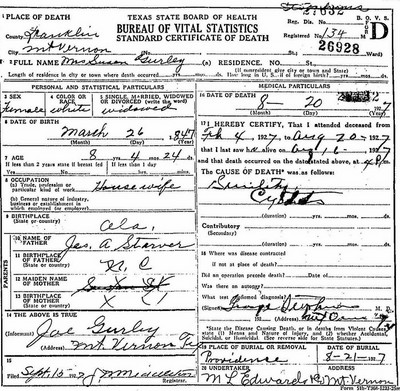 1 PLACE OF DEATH
TEXAS STATE BOARD OF HEALTH
BUREAU OF VITAL STATISTICS
STANDARD CERTIFICATE OF DEATH
B. O. V. S.
D
Reg. Dis.
Registered No. 134
26928
County Franklin
City Mt Vernon
2 FULL NAME Mrs Susan Gurley (a) RESIDENCE. No.
(If nonresident give city or town and State)
Length of residence in city or town where death occurred yrs. mos. ds. How long in U. S., if of foreign birth? yrs. mos. ds.
PERSONAL AND STATISTICAL PARTICULARS
MEDICAL PARTICULARS
3 SEX
female
4 COLOR OR RACE
white
5 SINGLE, MARRIED, WIDOWED OR DIVORCED (write the word)
widowed
6 DATE OF BIRTH
March 26 1847
(Month) (Day) (Year)
7 AGE 8 yrs. 4 mos. 24 ds.
If less than 2 years state if breast fed
If less than 1 day
8 OCCUPATION
(a) Trade, profession or particular kind of work Housewife
(b) General nature of industry, business or establishment in which employed (or employer)
9 BIRTHPLACE
(State or country) Ala.
PARENTS
10 NAME OF FATHER Jas. A Starver
11 BIRTHPLACE OF FATHER
(State or country) N. C
12 MAIDEN NAME OF MOTHER
13 BIRTHPLACE OF MOTHER
(State or country) X
14 THE ABOVE IS TRUE
(Informant) Joe Gurley
(Address) Mt Vernon
15
Filed Sept 15 192 J Middleton
16 DATE OF DEATH
8 - 20
(Month) (Day) (Year)
17 I HEREBY CERTIFY, That I attended deceased
from Feb 4 1927 to Aug 20 1927
that I last saw h alive on Aug 1927
and that death occurred on the date stated above, at
The CAUSE OF DEATH was as follows:
(duration) yrs. mos. ds.
Contributory
(Secondary)
(duration) yrs. mos. ds.
18 Where was disease contracted
if not at place of death?
Did an operation precede death? Date of
Was there an autopsy?
What test confirmed diagnosis?
(Signed) M. D.
192 (Address)
State the Disease Causing Death, or in deaths from Violent Causes, state (1) Means and Nature of Injury, and (2) whether Accidental, Suicidal, or Homicidal. (See reverse side for State Statutes).
19 PLACE OF BURIAL OR REMOVAL
DATE OF BURIAL
Providence
8-21-1927
20 UNDERTAKER
M L Edwards
Mt Vernon